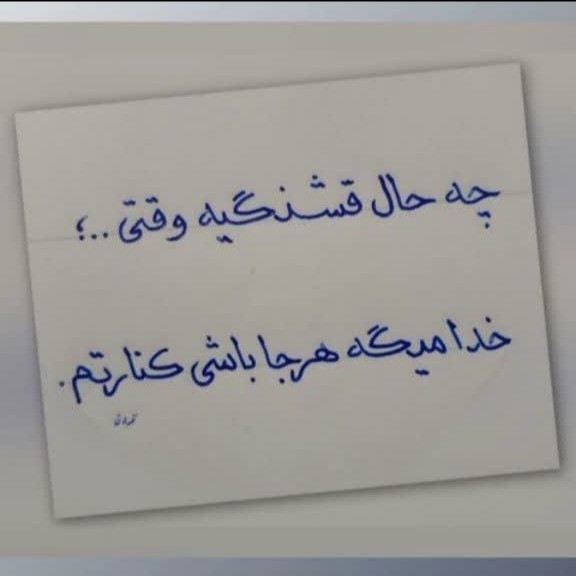 چه حال قشنگیه وقتی ..؛
خدا میگه هرجا باشی کنارتم.